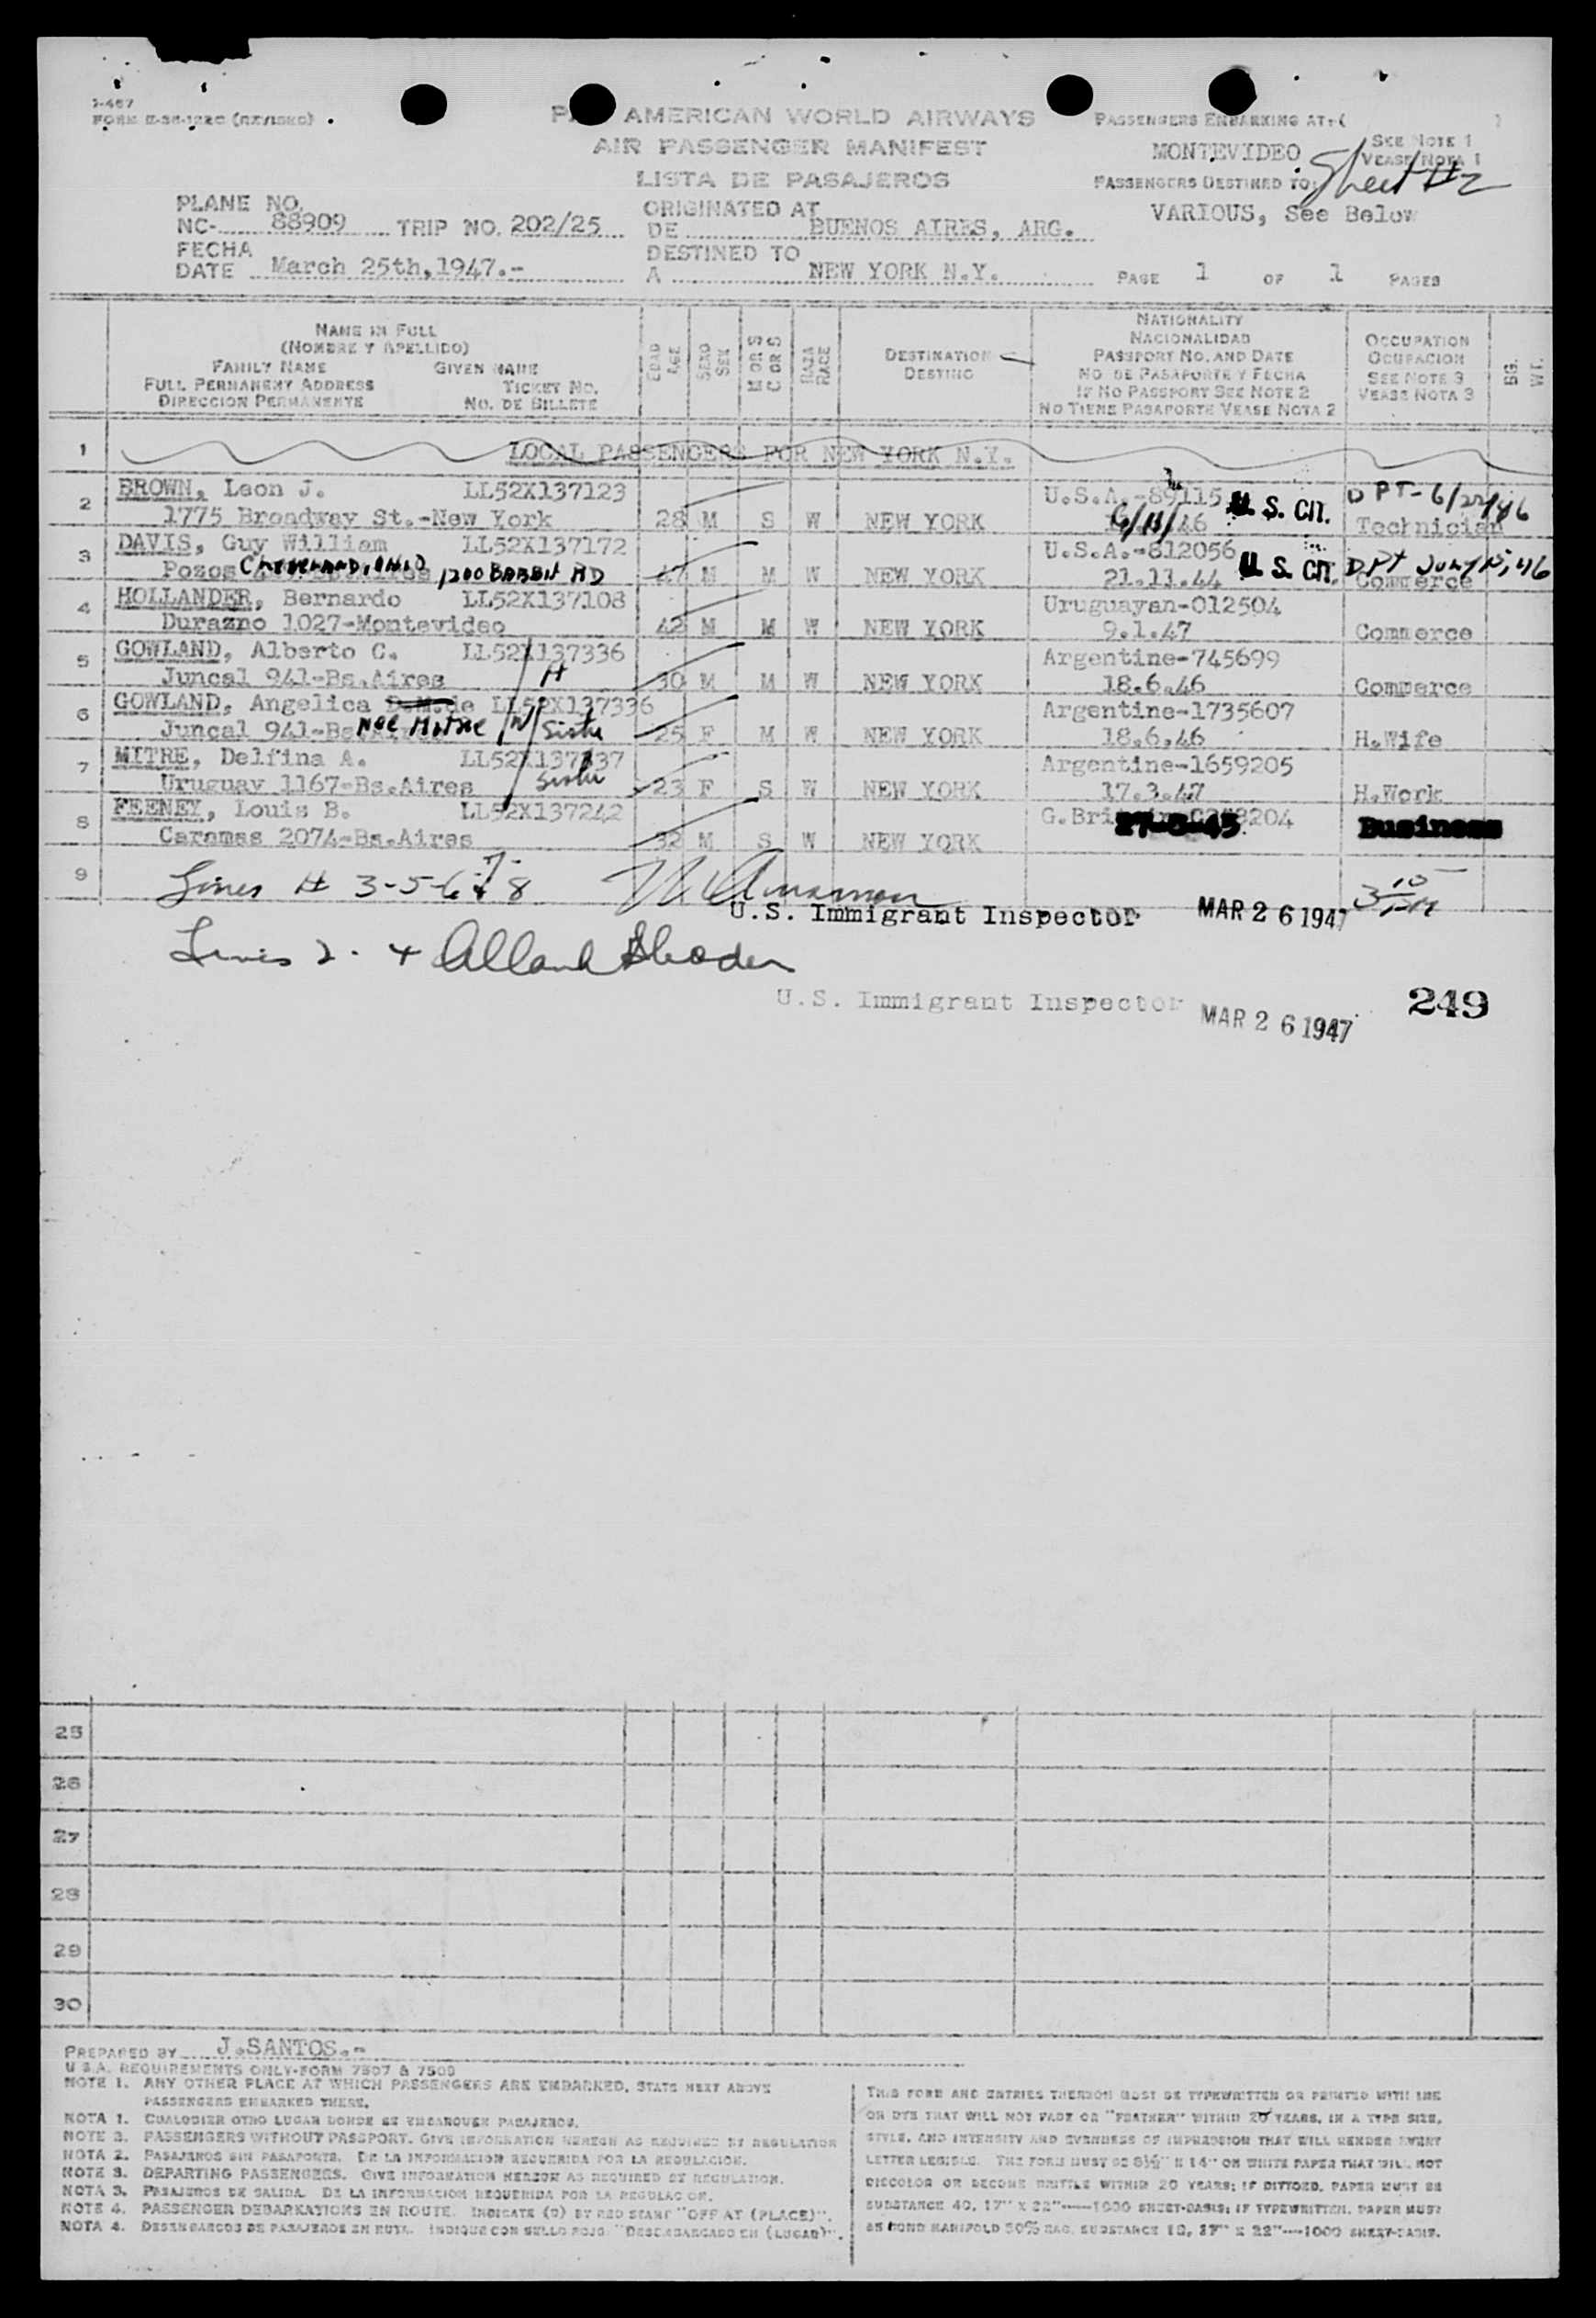 I-467
FORM
(REVISED)
AMERICAN WORLD AIRWAYS
AIR PASSENGER MANIFEST
LISTA DE PASAJEROS
PASSENGERS EMBARKING AT: ( )
MONTEVIDEO
SEE NOTE 1
VEASE NOTA 1
PASSENGERS DESTINED TO:
Sheet #2
VARIOUS, See Below
PLANE NO.
NC- 88909 TRIP NO. 202/25
FECHA
DATE March 25th,1947.-
ORIGINATED AT
DE BUENOS AIRES, ARG.
DESTINED TO
A NEW YORK N.Y.
PAGE 1 OF 1 PAGES
NAME IN FULL
(NOMBRE Y APELLIDO)
FAMILY NAME GIVEN NAME
FULL PERMANENT ADDRESS TICKET NO.
DIRECCION PERMANENTE NO. DE BILLETE
EDAD
AGE
SEXO
SEX
M OR S
C OR S
RAZA
RACE
DESTINATION
DESTINO
NATIONALITY
NACIONALIDAD
PASSPORT NO. AND DATE
NO DE PASAPORTE Y FECHA
IF NO PASSPORT SEE NOTE 2
NO TIENE PASAPORTE VEASE NOTA 2
OCCUPATION
OCUPACION
SEE NOTE 3
VEASE NOTA 3
BG.
WT.
1 LOCAL PASSENGERS FOR NEW YORK N.Y.
2 BROWN, Leon J. LL52X137123 U.S.A.-89115 U. S. CIT. DPT-6/22/46
1775 Broadway St.-New York 28 M S W NEW YORK 6/11/46 Technician
3 DAVIS, Guy William LL52X137172 U.S.A.-812056 U. S. CIT. DPT
Pozos CLEVELAND, OHIO 1200 BABBIT RD 47 M M W NEW YORK 21.11.44 Commerce
4 HOLLANDER, Bernardo LL52X137108 Uruguayan-012504
Durazno 1027-Montevideo 42 M M W NEW YORK 9.1.47 Commerce
5 GOWLAND, Alberto C. LL52X137336 Argentine-745699
Juncal 941-Bs.Aires H 30 M M W NEW YORK 18.6.46 Commerce
6 GOWLAND, Angelica D.M.de LL52X137336 Argentine-1735607
Juncal 941-Bs. nee Mitre W/ Sister 25 F M W NEW YORK 18.6.46 H.Wife
7 MITRE, Delfina A. LL52X137337 Argentine-1659205
Uruguay 1167-Bs.Aires Sister 23 F S W NEW YORK 17.3.47 H.Work
8 FEENEY, Louis B. LL52X137242 G.Britain 8204
Caramas 2074-Bs.Aires 32 M S W NEW YORK 27-8-45 Business
9 Lines # 3-5-6-7 & 8
U.S. Immigrant Inspector MAR 26 1947
Lines 2. 4
U.S. Immigrant Inspector MAR 26 1947
249
25
26
27
28
29
30
PREPARED BY J.SANTOS.-
U.S.A. REQUIREMENTS ONLY-FORM 7507 & 7508
NOTE 1. ANY OTHER PLACE AT WHICH PASSENGERS ARE EMBARKED, STATE NEXT ABOVE
PASSENGERS EMBARKED THERE.
NOTA 1. CUALQUIER OTRO LUGAR DONDE SE EMBARQUEN PASAJEROS.
NOTE 2. PASSENGERS WITHOUT PASSPORT. GIVE INFORMATION HEREON AS REQUIRED BY REGULATION
NOTA 2. PASAJEROS SIN PASAPORTE. DE LA INFORMACION REQUERIDA POR LA REGULACION.
NOTE 3. DEPARTING PASSENGERS. GIVE INFORMATION HEREON AS REQUIRED BY REGULATION.
NOTA 3. PASAJEROS DE SALIDA. DE LA INFORMACION REQUERIDA POR LA REGULACION.
NOTE 4. PASSENGER DEBARKATIONS EN ROUTE. INDICATE (D) BY RED STAMP "OFF AT (PLACE)".
NOTA 4. DESEMBARCOS DE PASAJEROS EN RUTA. INDIQUE CON SELLO ROJO "DESEMBARCADO EN (LUGAR)".
THIS FORM AND ENTRIES THEREON MUST BE TYPEWRITTEN OR PRINTED WITH INK
OR DYE THAT WILL NOT FADE OR "FEATHER" WITHIN 20 YEARS, IN A TYPE SIZE,
STYLE, AND INTENSITY AND EVENNESS OF IMPRESSION THAT WILL RENDER EVERY
LETTER LEGIBLE. THE FORM MUST BE 8½" X 14" ON WHITE PAPER THAT WILL NOT
DISCOLOR OR BECOME BRITTLE WITHIN 20 YEARS; IF DITTOED, PAPER MUST BE
SUBSTANCE 40, 17" X 22"----1000 SHEET-BASIS; IF TYPEWRITTEN, PAPER MUST
BE BOND MANIFOLD 50% RAG, SUBSTANCE 18, 17" X 22"----1000 SHEET-BASIS.